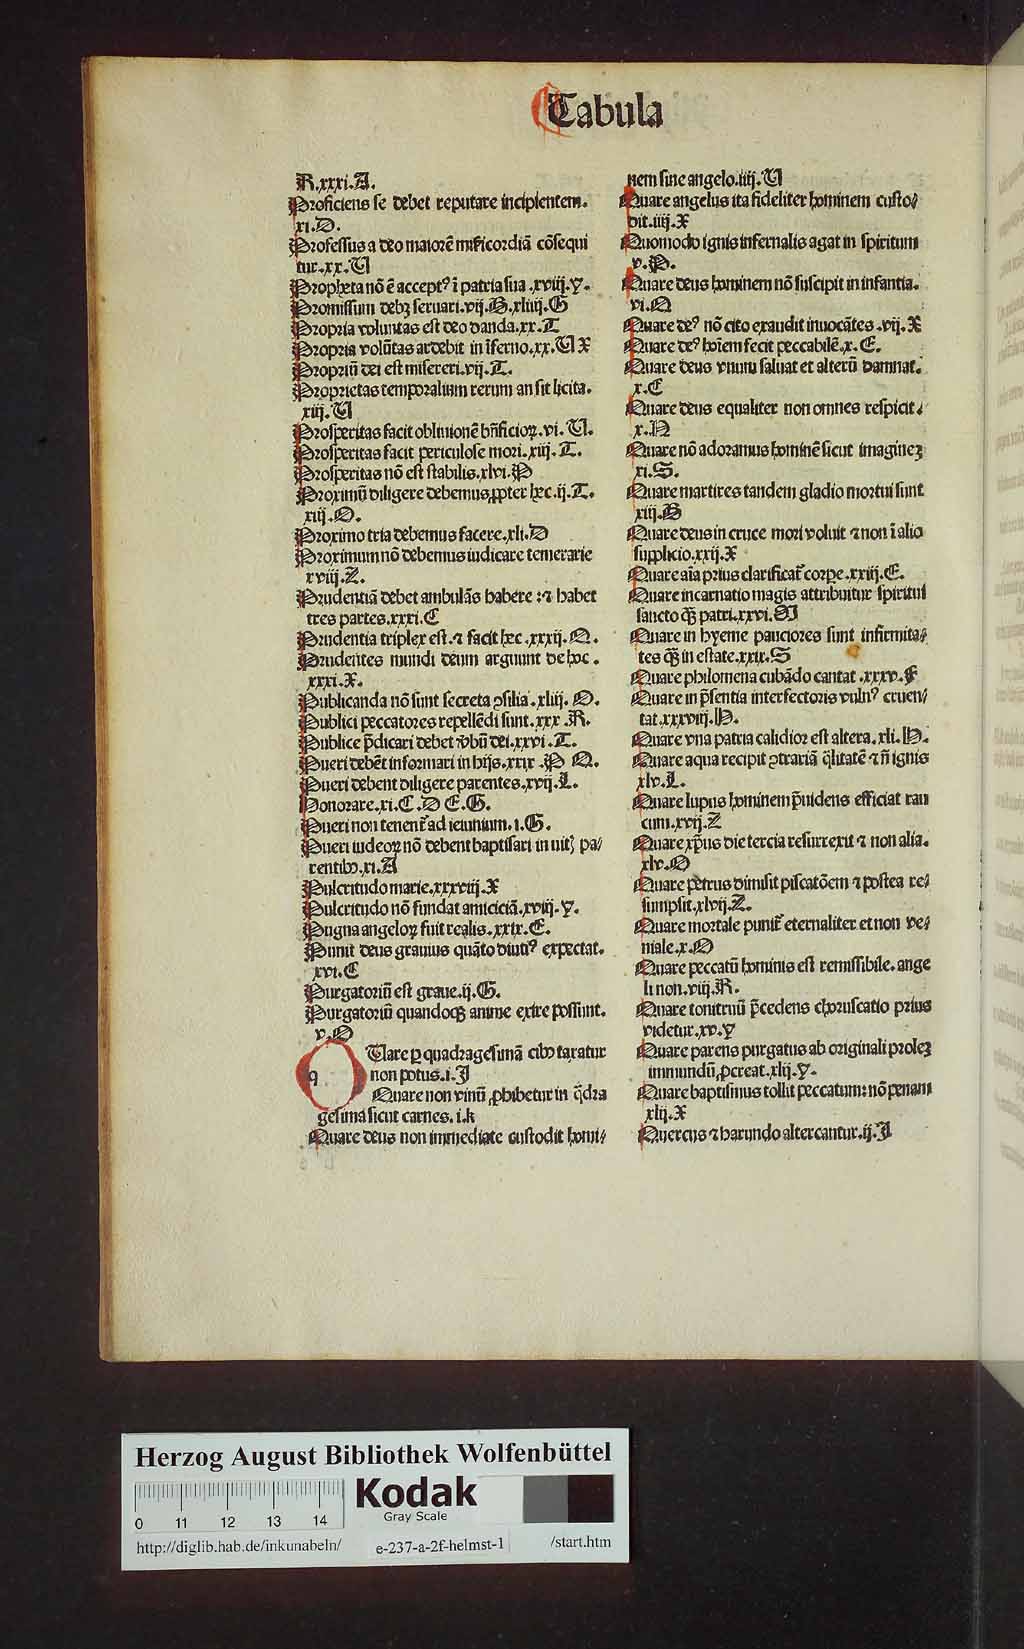 Tabula
R.xxxi.A.
Proficiens se debet reputare incipientem.
xi.D.
Professus a deo maiorē misericordiā cōsequi
tur.xx.V
Propheta nō ē acceptꝰ ī patria sua.xviij.Y.
Promissum debꝫ seruari.vij.B.xliiij.G
Propria voluntas est deo danda.xx.T
Propria volūtas ardebit in īferno.xx.V X
Propriū dei est misereri.vij.T.
Proprietas temporalium rerum an sit licita.
xiij.V
Prosperitas facit obliuionē bn̄ficioꝝ.vi.V.
Prosperitas facit periculose mori.xiij.T.
Prosperitas nō est stabilis.xlvi.P
Proximū diligere debemus ꝓpter hec.ij.T.
xiij.O.
Proximo tria debemus facere.xli.D
Proximum nō debemus iudicare temerarie
xviij.Z.
Prudentiā debet ambulās habere : ⁊ habet
tres partes.xxxi.C
Prudentia triplex est.⁊ facit hec.xxxij.Q.
Prudentes mundi deum arguunt de hoc.
xxxi.X.
Publicanda nō sunt secreta ꝯsilia.xliij.O.
Publici peccatores repellēdi sunt.xxx.R.
Publice p̄dicari debet v̄bū dei.xxvi.T.
Pueri debēt informari in hijs.xxix.P Q.
Pueri debent diligere parentes.xvij.L.
Honorare.xi.C.D E.G.
Pueri non tenent᷑ ad ieiunium.i.G.
Pueri iudeoꝝ nō debent baptisari in uitꝭ pa/
rentibꝰ.xi.A
Pulcritudo marie.xxxviij.X
Pulcritudo nō fundat amiciciā.xviij.Y.
Pugna angeloꝝ fuit realis.xxix.E.
Punit deus grauius quāto diutiꝰ expectat.
xvi.C
Purgatoriū est graue.ij.G.
Purgatoriū quandoqꝫ anime exire possunt.
v.O
q Uare ꝑ quadragesimā cibꝰ taxatur
non potus.i.I
Quare non vinū ꝓhibetur in q̄dra
gesima sicut carnes.i.k
Quare deus non immediate custodit homi/
nem sine angelo.iiij.V
Quare angelus ita fideliter hominem custo/
dit.iiij.X
Quomodo ignis infernalis agat in spiritum
v.P.
Quare deus hominem nō suscipit in infantia.
vi.Q
Quare deꝰ nō cito exaudit inuocātes.vij.X
Quare deꝰ hoīem fecit peccabilē.x.E.
Quare deus vnum saluat et alterū damnat.
x.C
Quare deus equaliter non omnes respicit.
x.N
Quare nō adoramus hominē sicut imagineꝫ
xi.S.
Quare martires tandem gladio mortui sunt
xiij.B
Quare deus in cruce mori voluit ⁊ non ī alio
supplicio.xxij.X
Quare aīa prius clarificat᷑ corpe.xxiij.E.
Quare incarnatio magis attribuitur spiritui
sancto qꝫ patri.xxvi.M
Quare in hyeme pauciores sunt infirmita/
tes qꝫ in estate.xxix.S
Quare philomena cubādo cantat.xxxv.F
Quare in p̄sentia interfectoris vulnꝰ cruen/
tat.xxxviij.H.
Quare vna patria calidior est altera.xli.H.
Quare aqua recipit ꝯtrariā q̄litatē ⁊ n̄ ignis
xlv.L.
Quare lupus hominem p̄uidens efficiat rau
cum.xvij.Z
Quare xp̄us die tercia resurrexit ⁊ non alia.
xlv.O
Quare petrus dimisit piscatōem ⁊ postea re/
sumpsit.xlvij.Z.
Quare mortale punit᷑ eternaliter et non ve/
niale.x.O
Quare peccatū hominis est remissibile.ange
li non.viij.R.
Quare tonitruū p̄cedens choruscatio prius
videtur.xv.Y
Quare parens purgatus ab originali proleꝫ
immundū ꝓcreat.xlij.Y.
Quare baptismus tollit peccatum: nō penam
xlij.X
Quercus ⁊ harundo altercantur.ij.I
Herzog August Bibliothek Wolfenbüttel
Kodak
Gray Scale
0 11 12 13 14
http://diglib.hab.de/inkunabeln/ e-237-a-2f-helmst-1 /start.htm